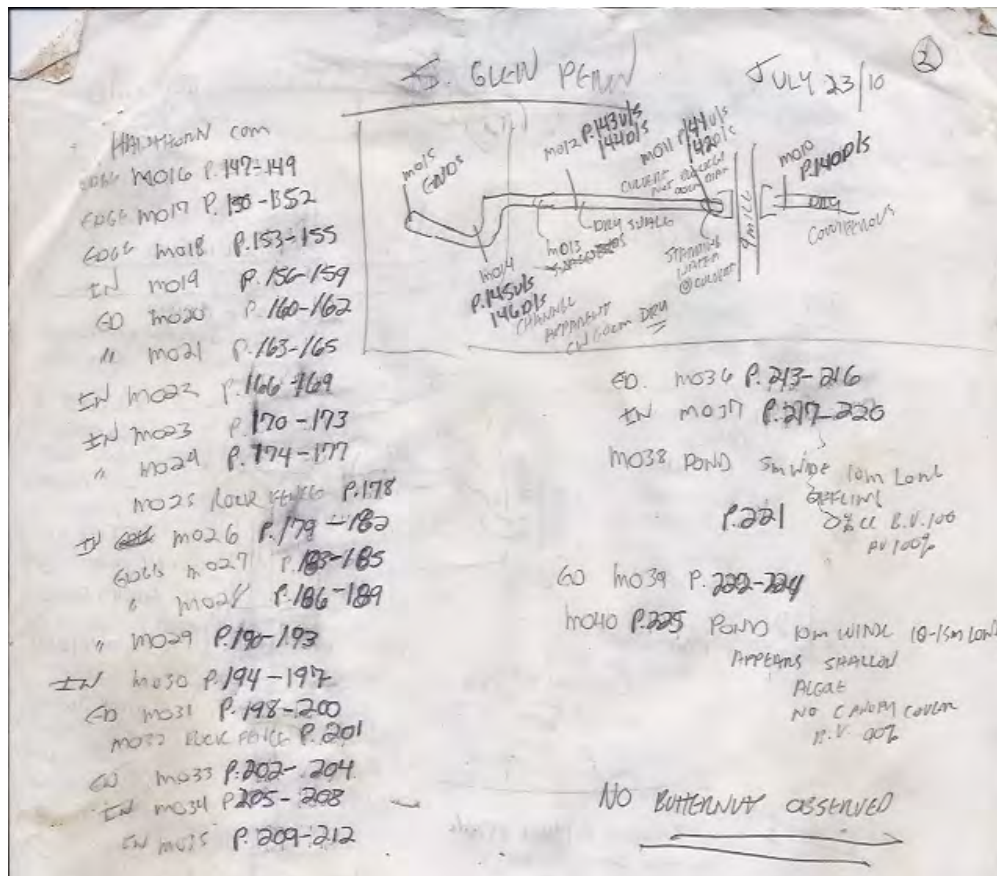 S. GLEN PENN
JULY 23/10
2
HAWTHORN COM
EDGE M016 P. 147-149
EDGE M017 P. 150-152
EDGE M018 P. 153-155
IN M019 P. 156-159
ED M020 P. 160-162
" M021 P. 163-165
IN M022 P. 166-169
IN M023 P. 170-173
" M024 P. 174-177
M025 ROCK FENCE P. 178
IN M026 P. 179-182
EDGE M027 P. 183-185
" M028 P. 186-189
" M029 P. 190-193
IN M030 P. 194-197
ED M031 P. 198-200
M032 ROCK FENCE P. 201
ED M033 P. 202-204
IN M034 P. 205-208
IN M035 P. 209-212
M015
ENDS
M012 P. 143 U/S
144 D/S
M011 P. 141 U/S
142 D/S
M010
P. 140 D/S
CULVERT
NOT
DRY SWALE
M013
M014
P. 145 U/S
146 D/S
CHANNEL
APPARENT
CW 60cm DRY
STANDING
WATER
@ CULVERT
9TH LINE
DRY
CONIFEROUS
ED. M036 P. 213-216
IN M037 P. 217-220
M038 POND 5m WIDE 10m LONG
P. 221 0% CC B.V. 100
AV 100%
ED M039 P. 222-224
M040 P. 225 POND 10m WIDE 10-15m LONG
APPEARS SHALLOW
ALGAE
NO CANOPY COVER
B.V. 90%
NO BUTTERNUT OBSERVED